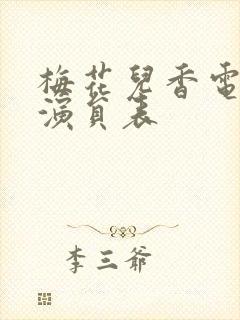 梅花兒香電
演員表
李三爺